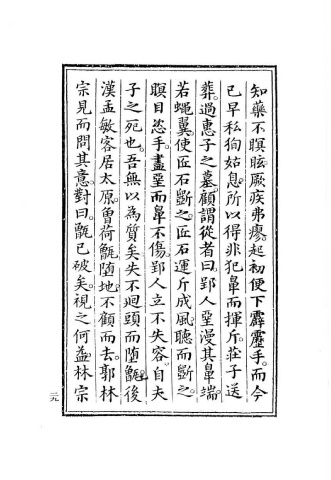 知藥不瞑眩。厥疾弗瘳。起初便下霹靂手。而今
已早私狥姑息。所以得非犯鼻而揮斤。莊子送
葬。過惠子之墓。顧謂從者曰。郢人堊漫其鼻端。
若蠅翼。使匠石斷之。匠石運斤成風。聽而斷之。
瞑目恣手。盡堊而鼻不傷。郢人立不失容。自夫
子之死也。吾無以為質矣。失不廻頭而墮甑。後
漢孟敏客居太原。曾荷甑墮地。不顧而去。郭林
宗見而問其意。對曰。甑已破矣。視之何益。林宗
二九